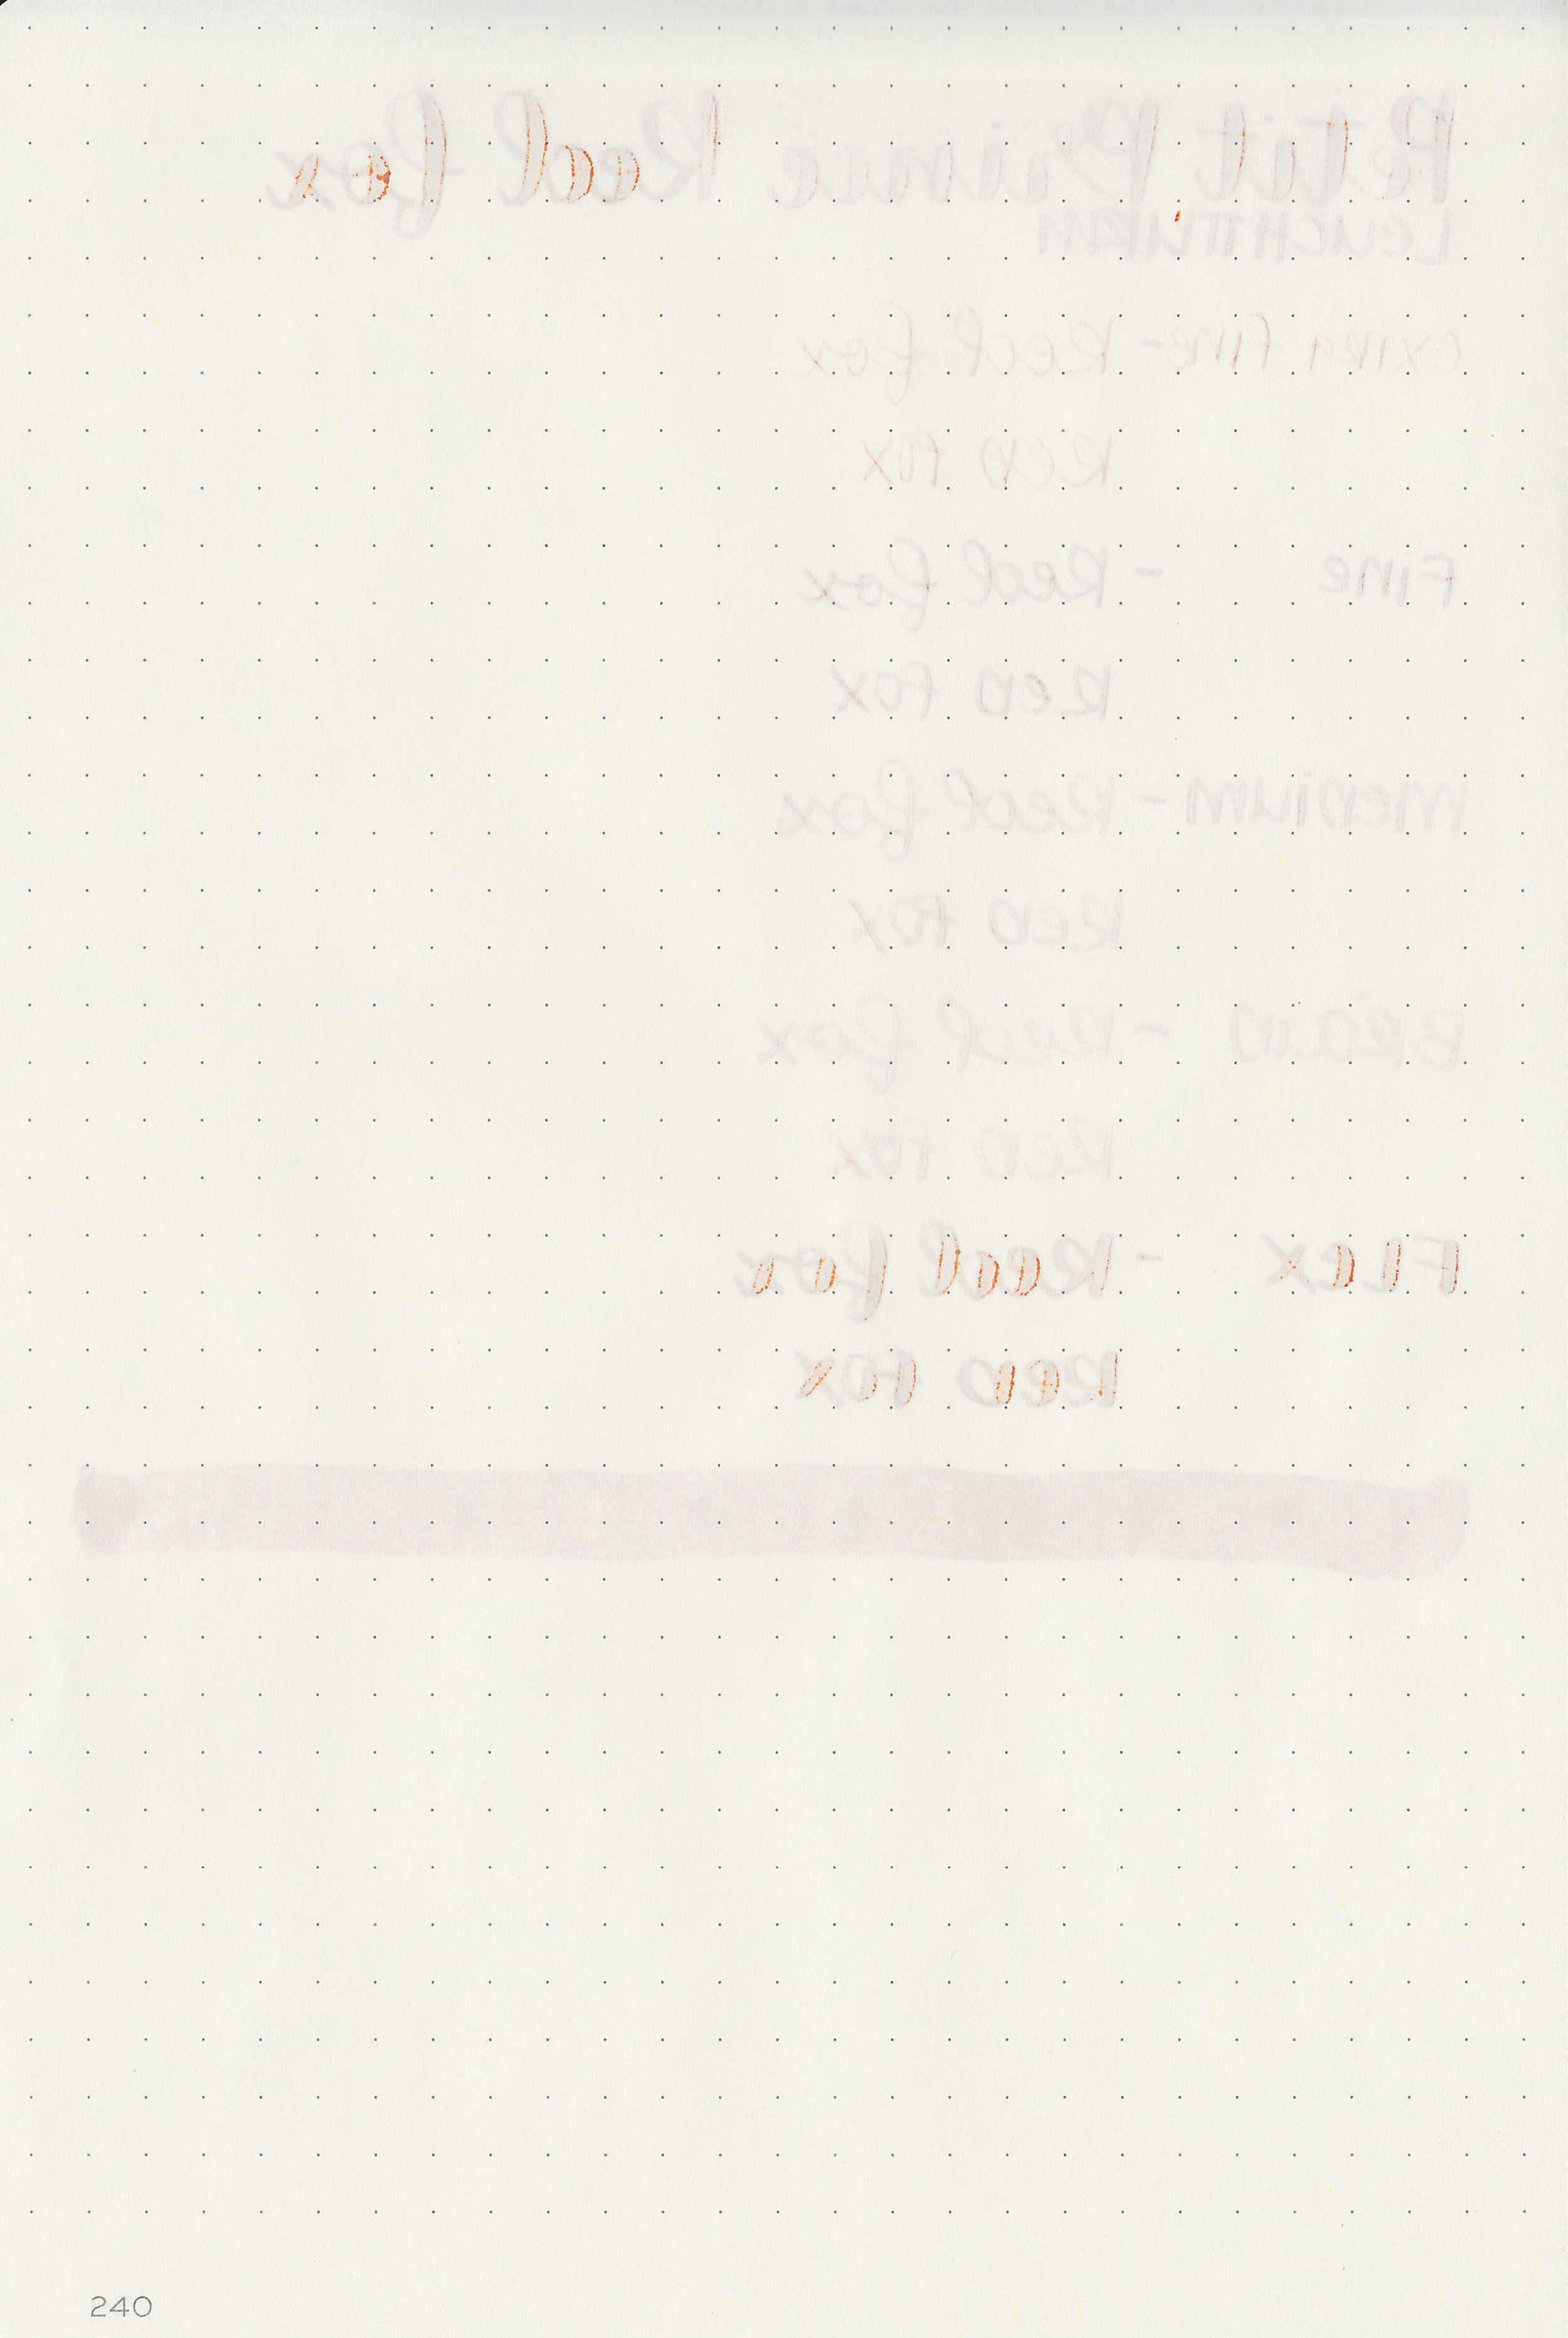 Petit Prince Red Fox
Leuchtturm
Extra Fine - Red fox
Red fox
Fine - Red fox
Red Fox
Medium - Red fox
Red fox
Broad - Red fox
Red fox
Flex - Red fox
Red Fox
240